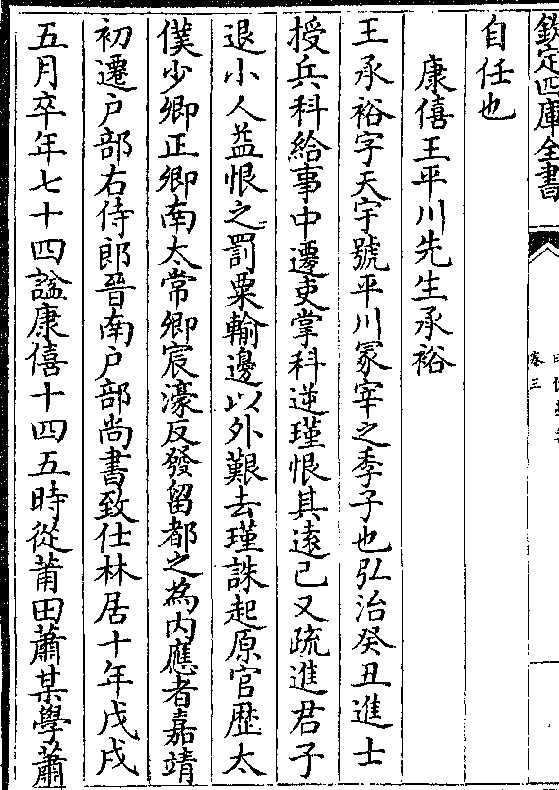 欽定四庫全書
卷三
自任也
康僖王平川先生承裕
王承裕字天宇號平川冢宰之季子也弘治癸丑進士
授兵科給事中遷吏掌科逆瑾恨其遠己又疏進君子
退小人益恨之罰粟輸邊以外艱去瑾誅起原官歴太
僕少卿正卿南太常卿宸濠反發留都之為内應者嘉靖
初遷户部右侍郎晉南户部尚書致仕林居十年戊戌
五月卒年七十四諡康僖十四五時從莆田蕭某學蕭